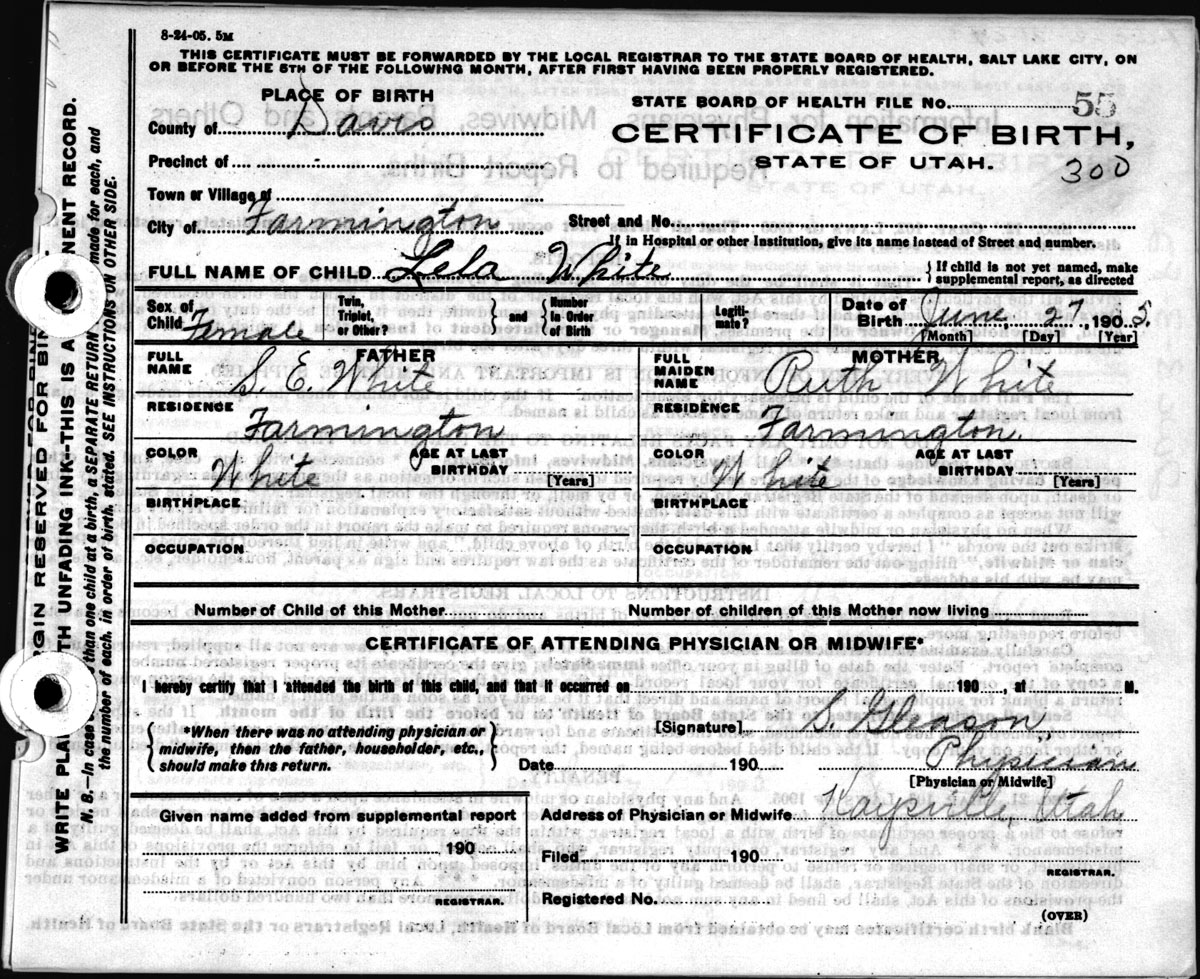 8-24-05. 5M
THIS CERTIFICATE MUST BE FORWARDED BY THE LOCAL REGISTRAR TO THE STATE BOARD OF HEALTH, SALT LAKE CITY, ON
OR BEFORE THE 5TH OF THE FOLLOWING MONTH, AFTER FIRST HAVING BEEN PROPERLY REGISTERED.
PLACE OF BIRTH
County of Davis
Precinct of -
Town or Village of
City of Farmington
STATE BOARD OF HEALTH FILE No. 55
CERTIFICATE OF BIRTH,
STATE OF UTAH.
300
Street and No.
If in Hospital or other Institution, give its name instead of Street and number.
FULL NAME OF CHILD Lela White
If child is not yet named, make
supplemental report, as directed
Sex of
Child Female
Twin,
Triplet,
or Other?
and
Number
in Order
of Birth
Legiti-
mate?
Date of
Birth June 27, 1905.
[Month] [Day] [Year]
FATHER
FULL
NAME S. E. White
RESIDENCE
Farmington
COLOR White
AGE AT LAST
BIRTHDAY
[Years]
BIRTHPLACE
OCCUPATION
MOTHER
FULL
MAIDEN
NAME Ruth White
RESIDENCE
Farmington.
COLOR White
AGE AT LAST
BIRTHDAY
[Years]
BIRTHPLACE
OCCUPATION
Number of Child of this Mother
Number of children of this Mother now living
CERTIFICATE OF ATTENDING PHYSICIAN OR MIDWIFE*
I hereby certify that I attended the birth of this child, and that it occurred on 190 , at M.
*When there was no attending physician or
midwife, then the father, householder, etc.,
should make this return.
[Signature] S Gleason
Physician
Date 190
[Physician or Midwife]
Given name added from supplemental report
190
REGISTRAR.
Address of Physician or Midwife Kaysville, Utah
Filed 190
REGISTRAR.
Registered No.
(OVER)
WRITE UNFADING INK—THIS IS A RECORD.
N. B.—In case than one child at a birth, a SEPARATE RETURN made for each, and
the number of each, in order of birth, stated. SEE INSTRUCTIONS ON OTHER SIDE.